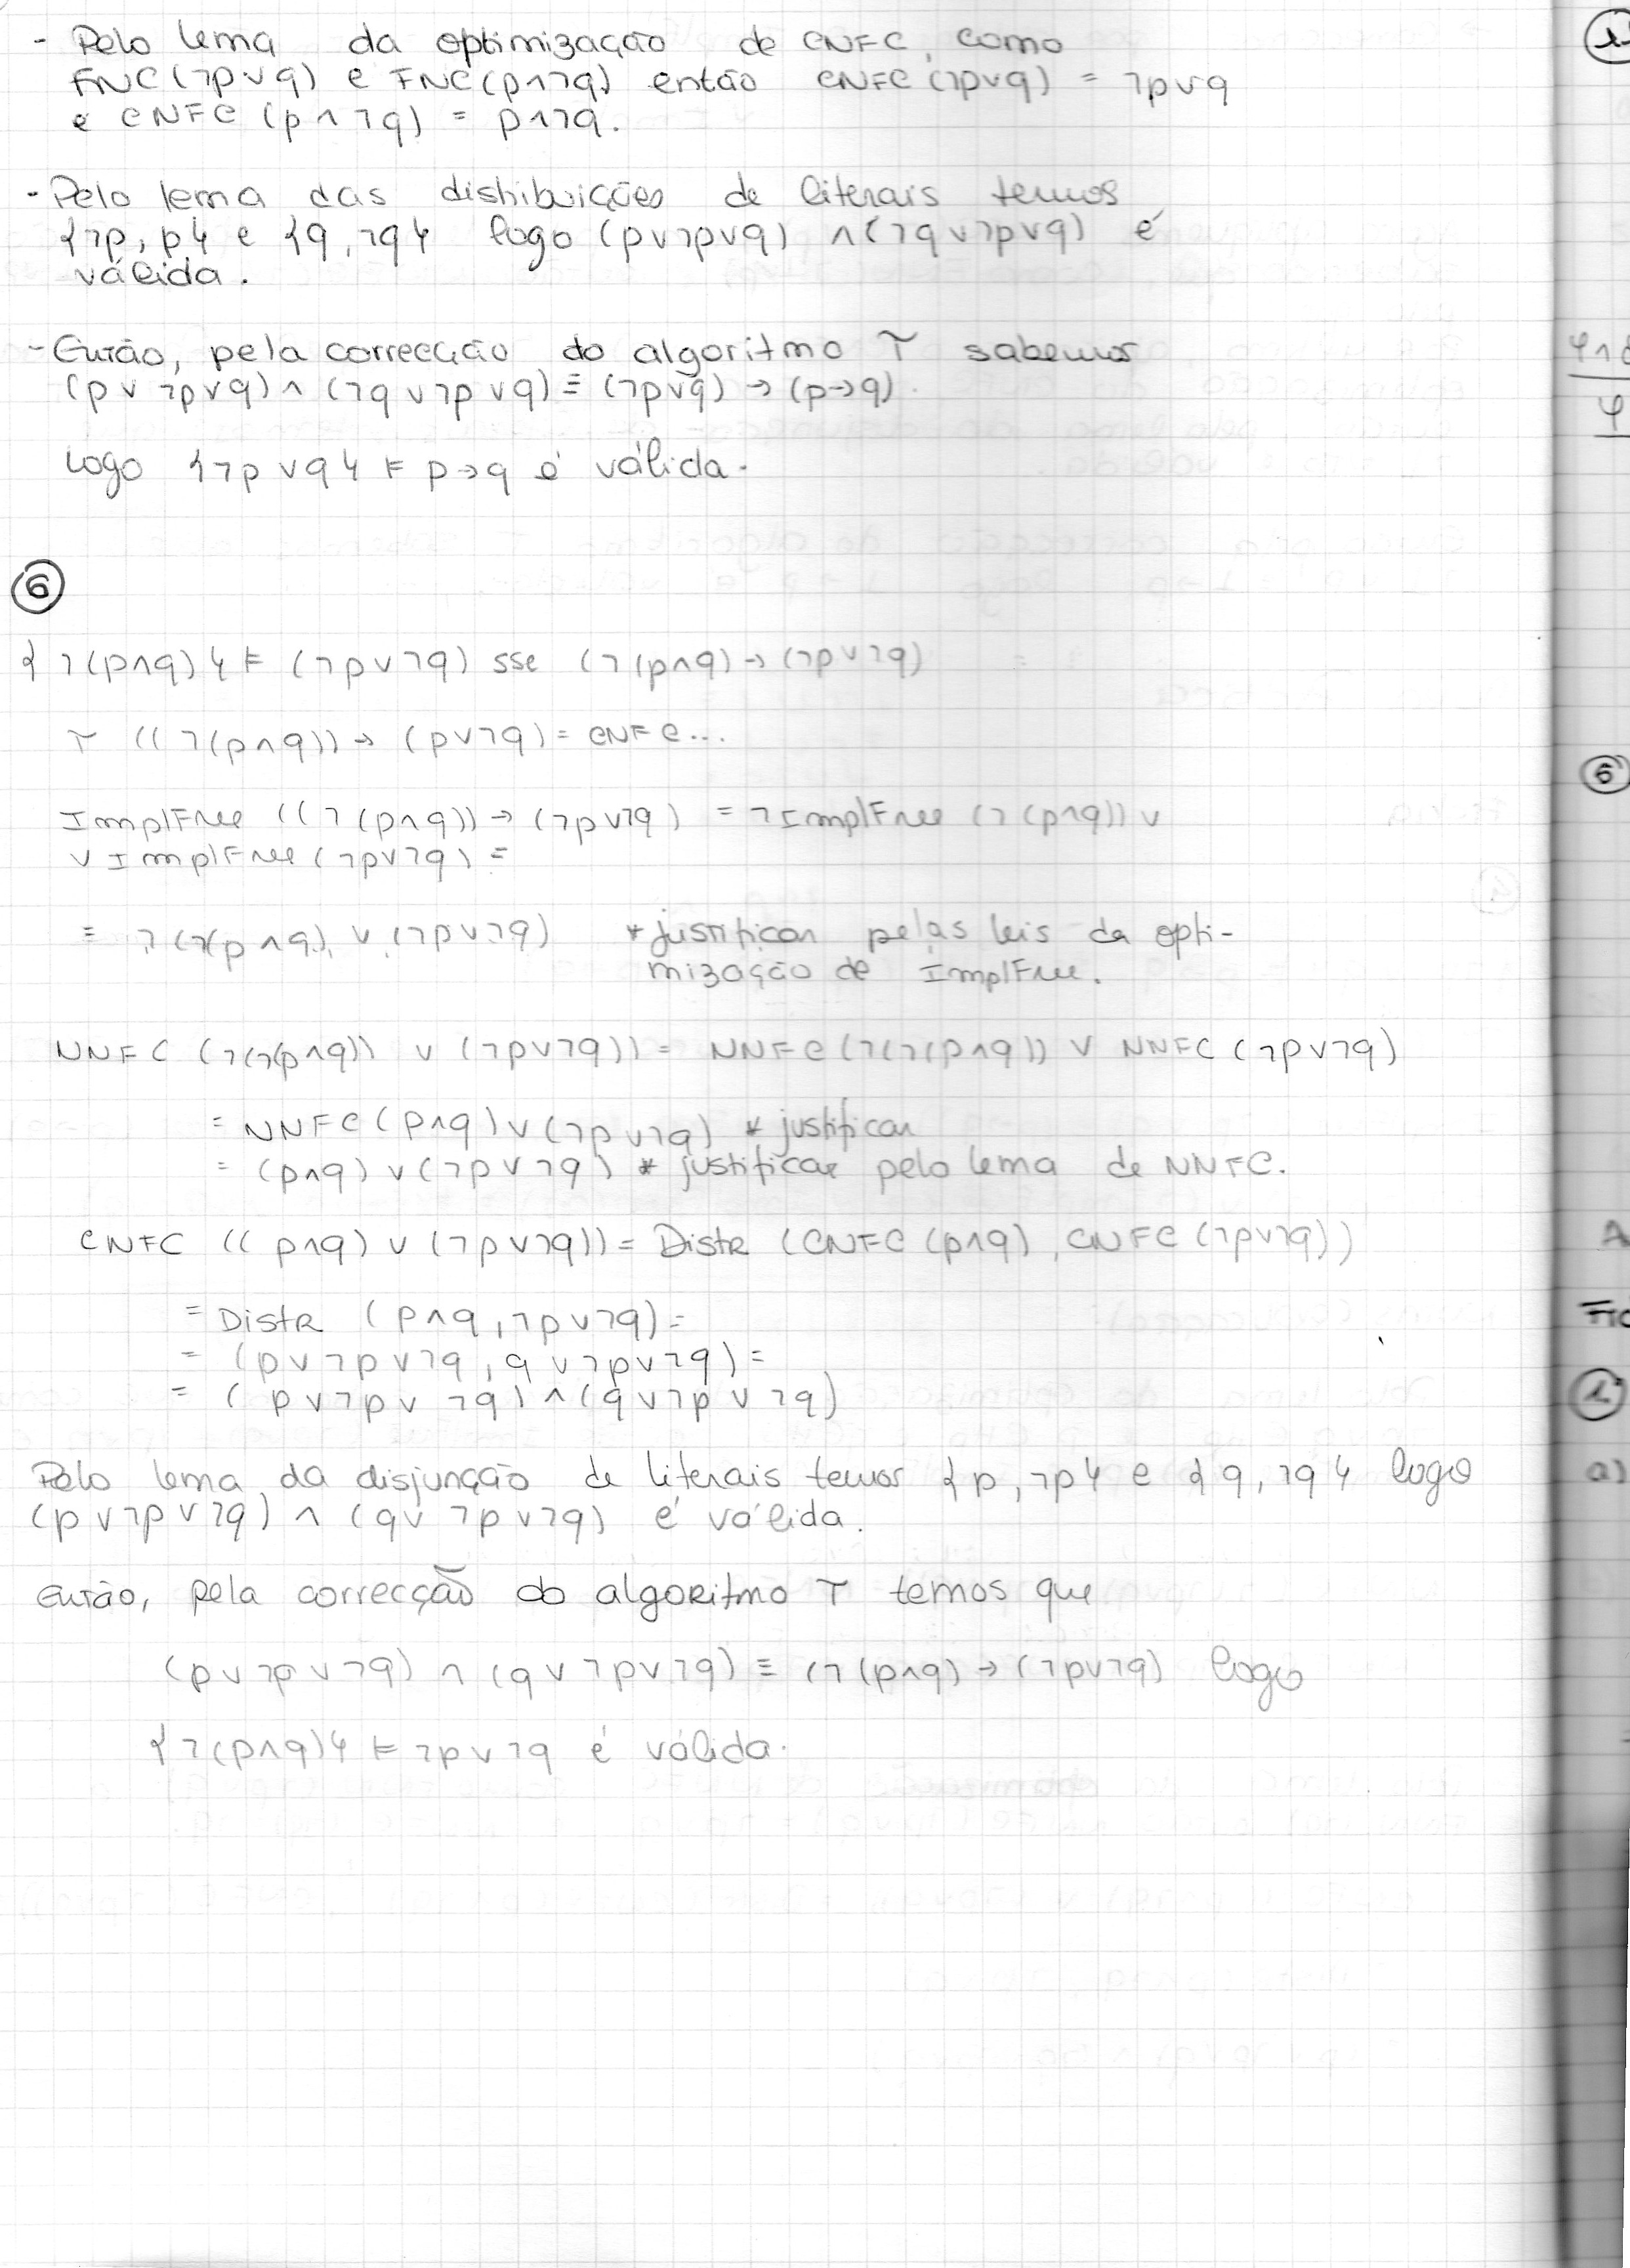 - Pelo lema da optimização de CNFC, como
FNC(¬p∨q) e FNC(p∧¬q) então CNFC(¬p∨q) = ¬p∨q
e CNFC (p∧¬q) = p∧¬q.
- Pelo lema das distribuições de literais temos
{¬p, p} e {q, ¬q} logo (p∨¬p∨q) ∧(¬q∨¬p∨q) é
válida.
- Então, pela correcção do algoritmo T sabemos
(p∨¬p∨q)∧(¬q∨¬p∨q) ≡ (¬p∨q) → (p→q).
Logo {¬p∨q} ⊨ p→q é válida.
6
{¬(p∧q)} ⊨ (¬p∨¬q) sse (¬(p∧q) → (¬p∨¬q)
T ((¬(p∧q)) → (p∨¬q) = CNFC...
ImplFree ((¬(p∧q)) → (¬p∨¬q) = ¬ImplFree (¬(p∧q)) ∨
∨ ImplFree(¬p∨¬q) =
= ¬(¬(p∧q)) ∨ (¬p∨¬q) * justificar pelas leis da opti-
mização de ImplFree.
NNFC (¬(¬(p∧q)) ∨ (¬p∨¬q)) = NNFC(¬(¬(p∧q)) ∨ NNFC(¬p∨¬q)
= NNFC(p∧q)∨(¬p∨¬q) * justificar
= (p∧q) ∨(¬p∨¬q) * justificar pelo lema de NNFC.
CNFC ((p∧q) ∨ (¬p∨¬q)) = Distr (CNFC(p∧q), CNFC(¬p∨¬q))
= Distr (p∧q, ¬p∨¬q) =
= (p∨¬p∨¬q, q∨¬p∨¬q) =
= (p∨¬p∨¬q) ∧(q∨¬p∨¬q)
Pelo lema da disjunção de literais temos {p, ¬p} e {q, ¬q} logo
(p∨¬p∨¬q) ∧ (q∨¬p∨¬q) é válida.
Então, pela correcção do algoritmo T temos que
(p∨¬p∨¬q) ∧ (q∨¬p∨¬q) ≡ (¬(p∧q) → (¬p∨¬q) logo
{¬(p∧q)} ⊨ ¬p∨¬q é válida.
6
a)